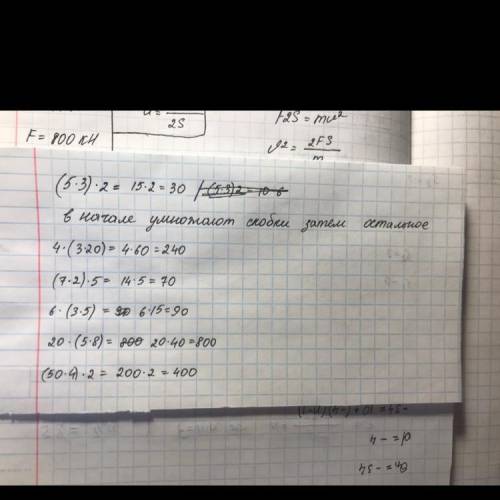 2S
F = 800 кН
F2S = mv²
v² = 2FS/m
(5·3)·2 = 15·2 = 30
в начале умножают скобки затем остальное
4·(3·20) = 4·60 = 240
(7·2)·5 = 14·5 = 70
6·(3·5) = 6·15 = 90
20·(5·8) = 20·40 = 800
(50·4)·2 = 200·2 = 400
d = -4